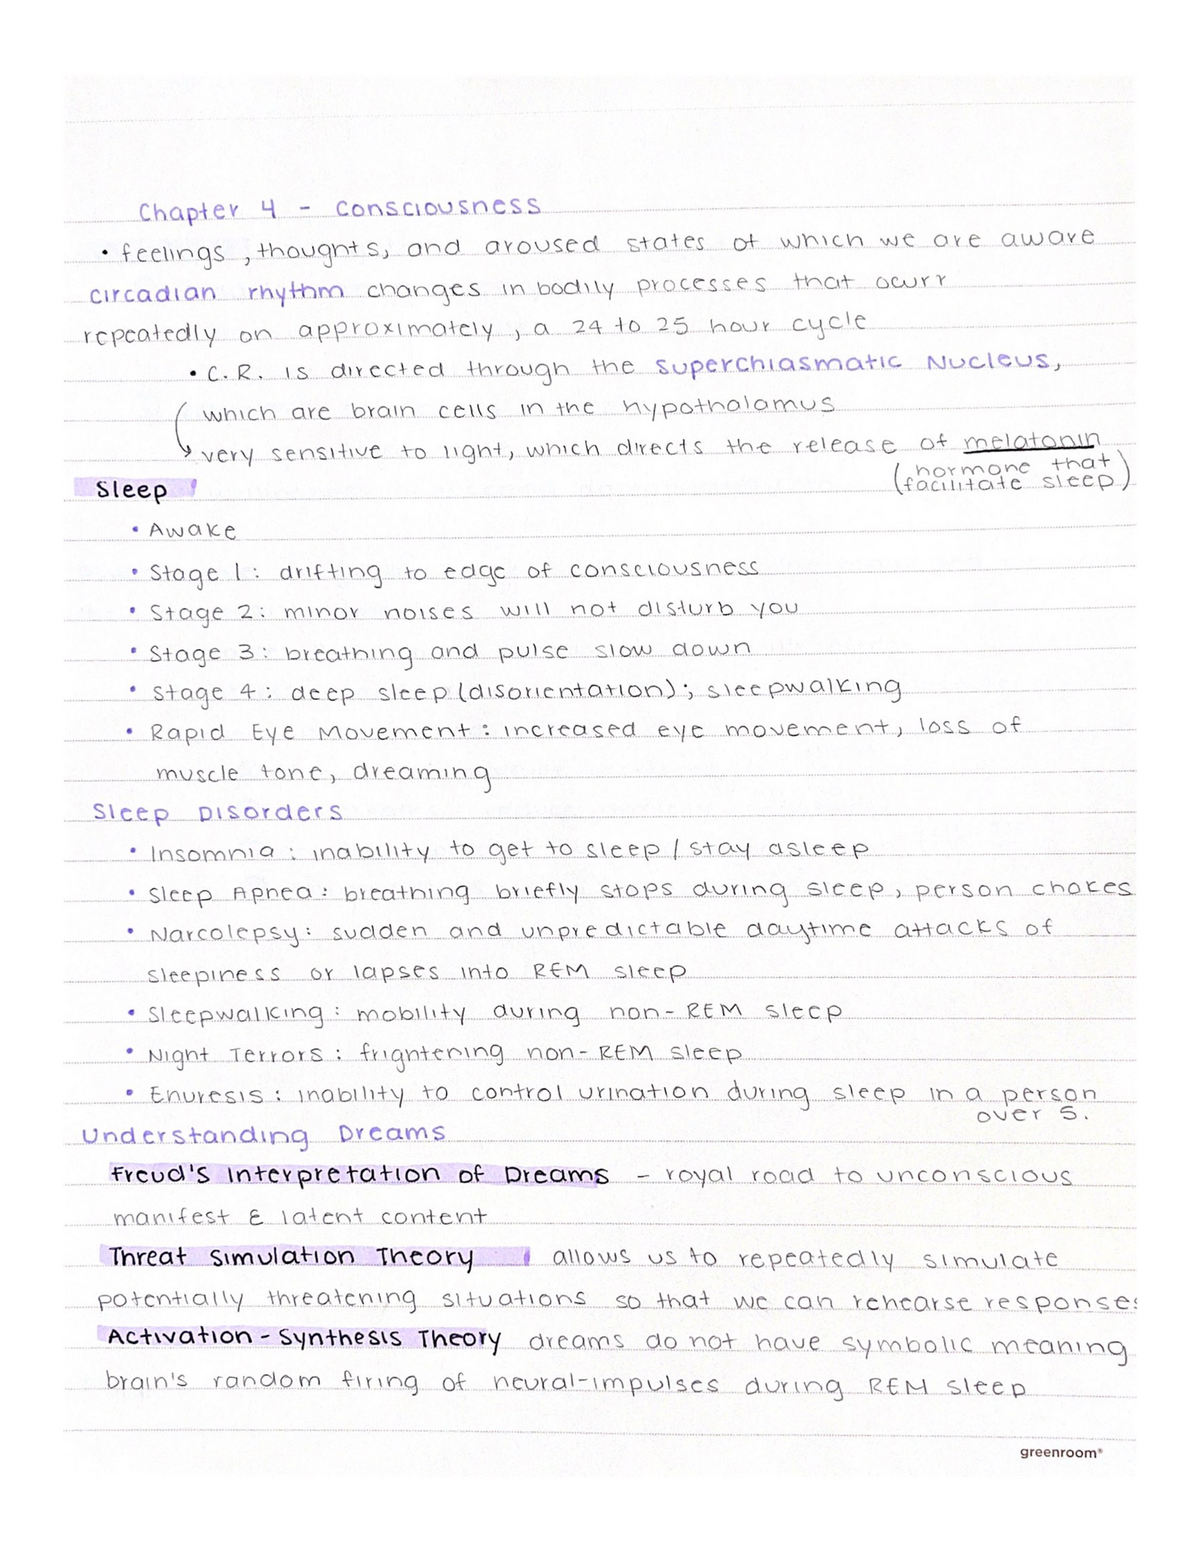 Chapter 4 - Consciousness
• feelings, thoughts, and aroused states of which we are aware
circadian rhythm changes in bodily processes that ocurr
repeatedly on approximately, a 24 to 25 hour cycle
• C.R. is directed through the Superchiasmatic Nucleus,
which are brain cells in the hypothalamus
very sensitive to light, which directs the release of melatonin
(hormone that
facilitate sleep)
Sleep
• Awake
• Stage 1: drifting to edge of consciousness
• Stage 2: minor noises will not disturb you
• Stage 3: breathing and pulse slow down
• Stage 4: deep sleep (disorientation); sleepwalking
• Rapid Eye Movement: increased eye movement, loss of
muscle tone, dreaming
Sleep Disorders
• Insomnia: inability to get to sleep / stay asleep
• Sleep Apnea: breathing briefly stops during sleep, person chokes
• Narcolepsy: sudden and unpredictable daytime attacks of
sleepiness or lapses into REM sleep
• Sleepwalking: mobility during non-REM sleep
• Night Terrors: frightening non-REM sleep
• Enuresis: inability to control urination during sleep in a person
over 5.
Understanding Dreams
Freud's Interpretation of Dreams - royal road to unconscious
manifest & latent content
Threat Simulation Theory allows us to repeatedly simulate
potentially threatening situations so that we can rehearse responses
Activation-Synthesis Theory dreams do not have symbolic meaning
brain's random firing of neural-impulses during REM sleep
greenroom®